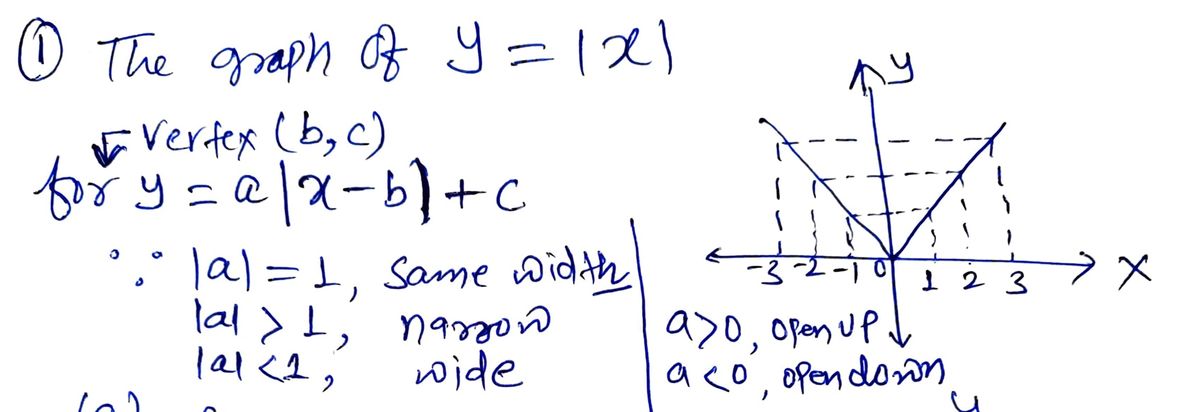 ① The graph of y = |x|
y
Vertex (b, c)
for y = a|x-b|+c
-3 -2 -1 0 1 2 3 X
∵ |a| = 1, Same width
|a| > 1, narrow
|a| < 1, wide
a>0, open up
a<0, open down